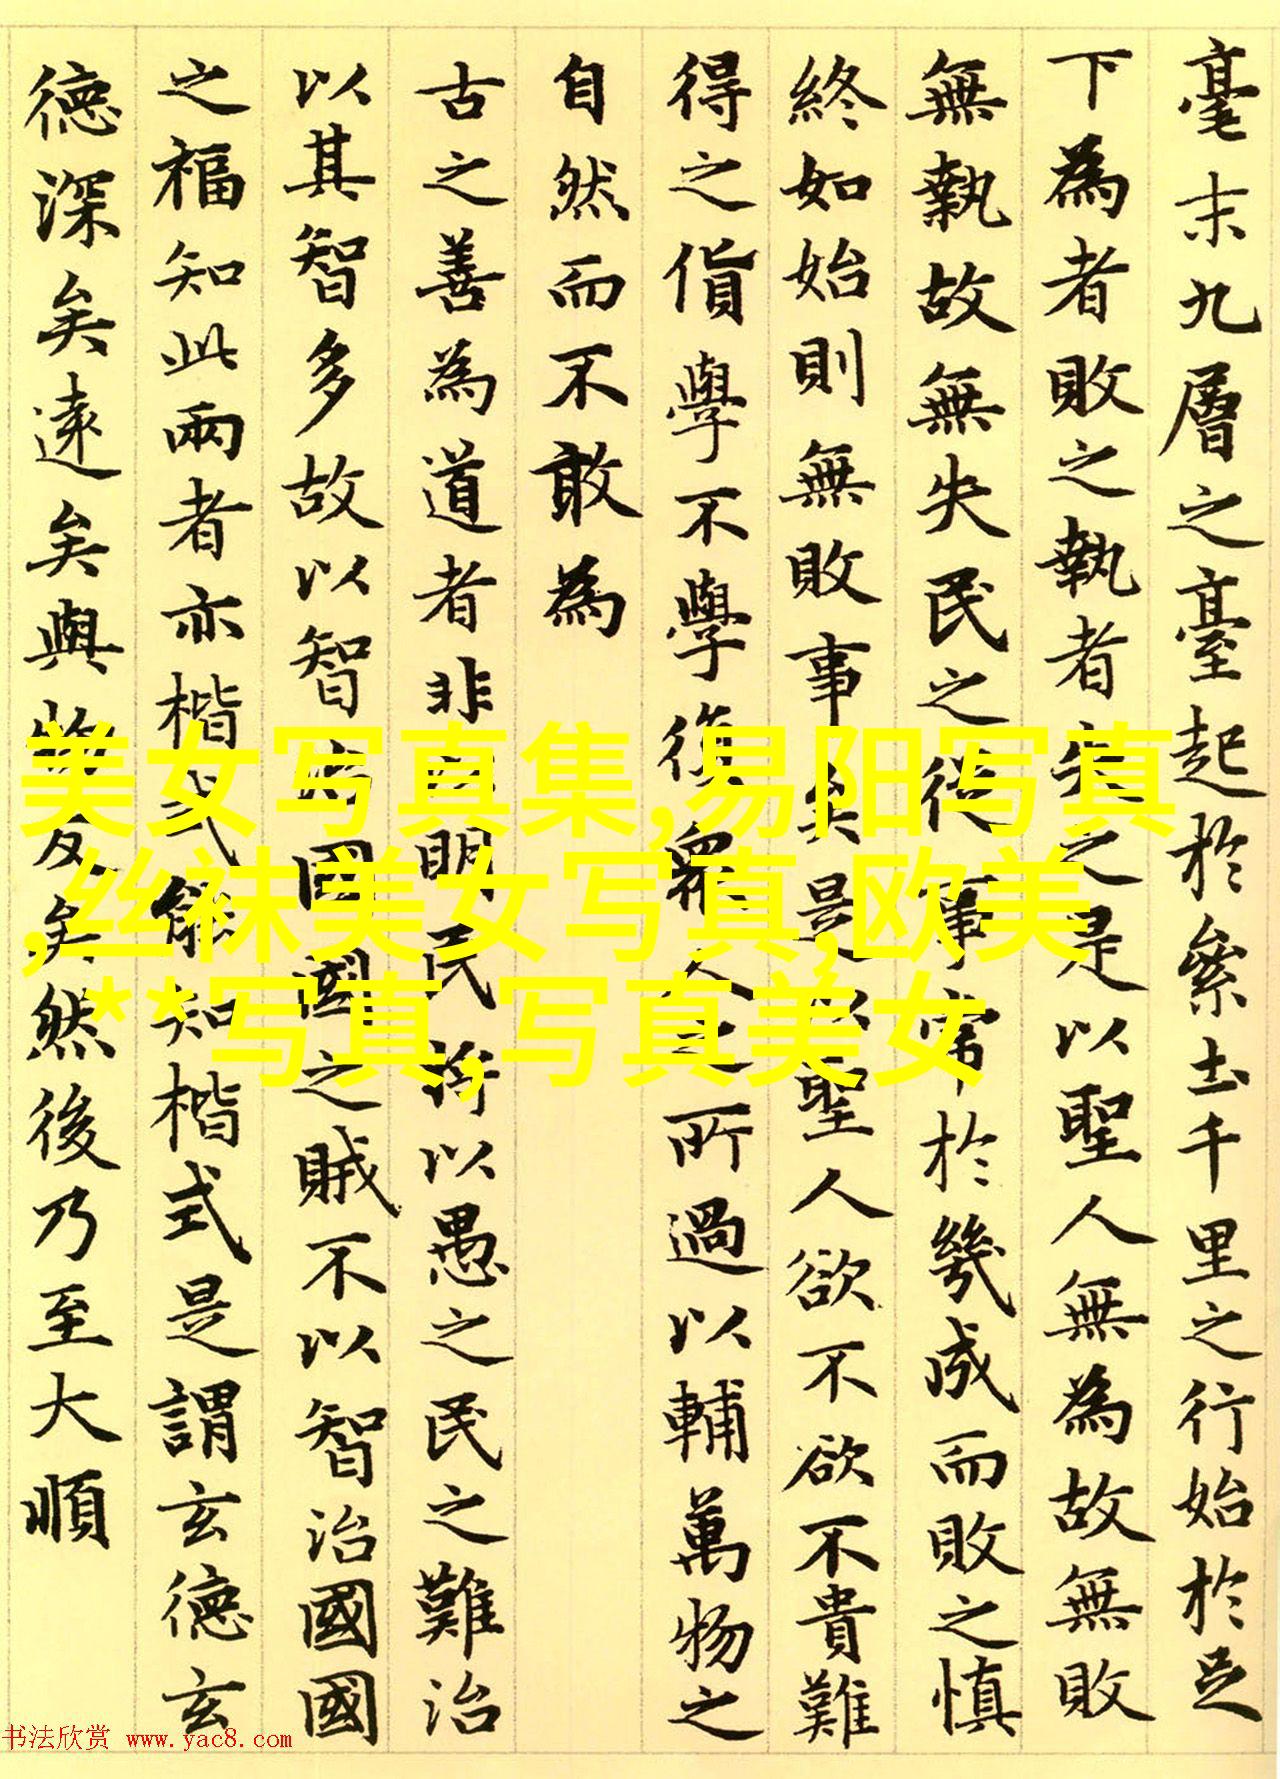 毫末九層之臺起於絫土千里之行始於足
下為者敗之執者失之是以聖人無為故無敗
無執故無失民之從事常於幾成而敗之慎
終如始則無敗事矣是以聖人欲不欲不貴難
得之貨學不學復眾人之所過以輔萬物之
自然而不敢為
古之善為道者非以明民將以愚之民之難治
以其智多故以智治國國之賊不以智治國國
之福知此兩者亦楷式能知楷式是謂玄德玄
德深矣遠矣與物反矣然後乃至大順
美女写真集,易阳写真
,丝袜美女写真,欧美
**写真,写真美女
书法欣赏 www.yac8.com